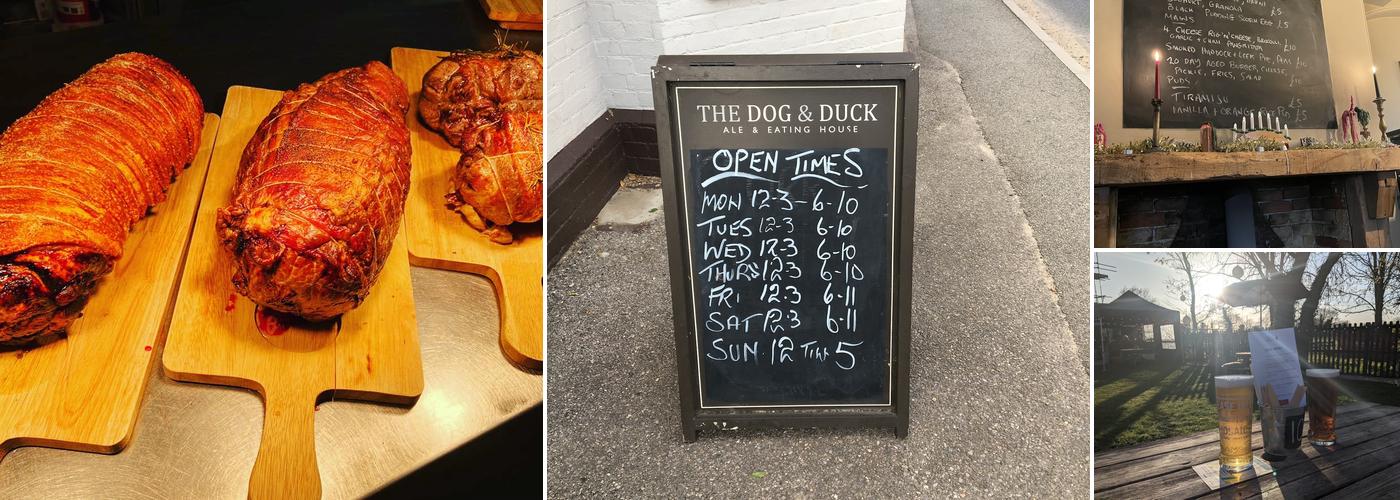 THE DOG & DUCK
ALE & EATING HOUSE
OPEN TIMES
MON 12-3-6-10
TUES 12-3 6-10
WED 12-3 6-10
THURS 12-3 6-10
FRI 12-3 6-11
SAT 12-3 6-11
SUN. 12 TILL 5
GRANOLA £5
BLACK PUDDING SCOTCH EGG £5
MAINS
4 CHEESE RIG'N'CHEESE, £10
GARLIC +
SMOKED HADDOCK + LEEK PIE, PEAS £10
20 DAY AGED BURGER, CHEESE,
PICKLE, FRIES, SALAD
PUDS
TIRAMISU £5
VANILLA + ORANGE £5